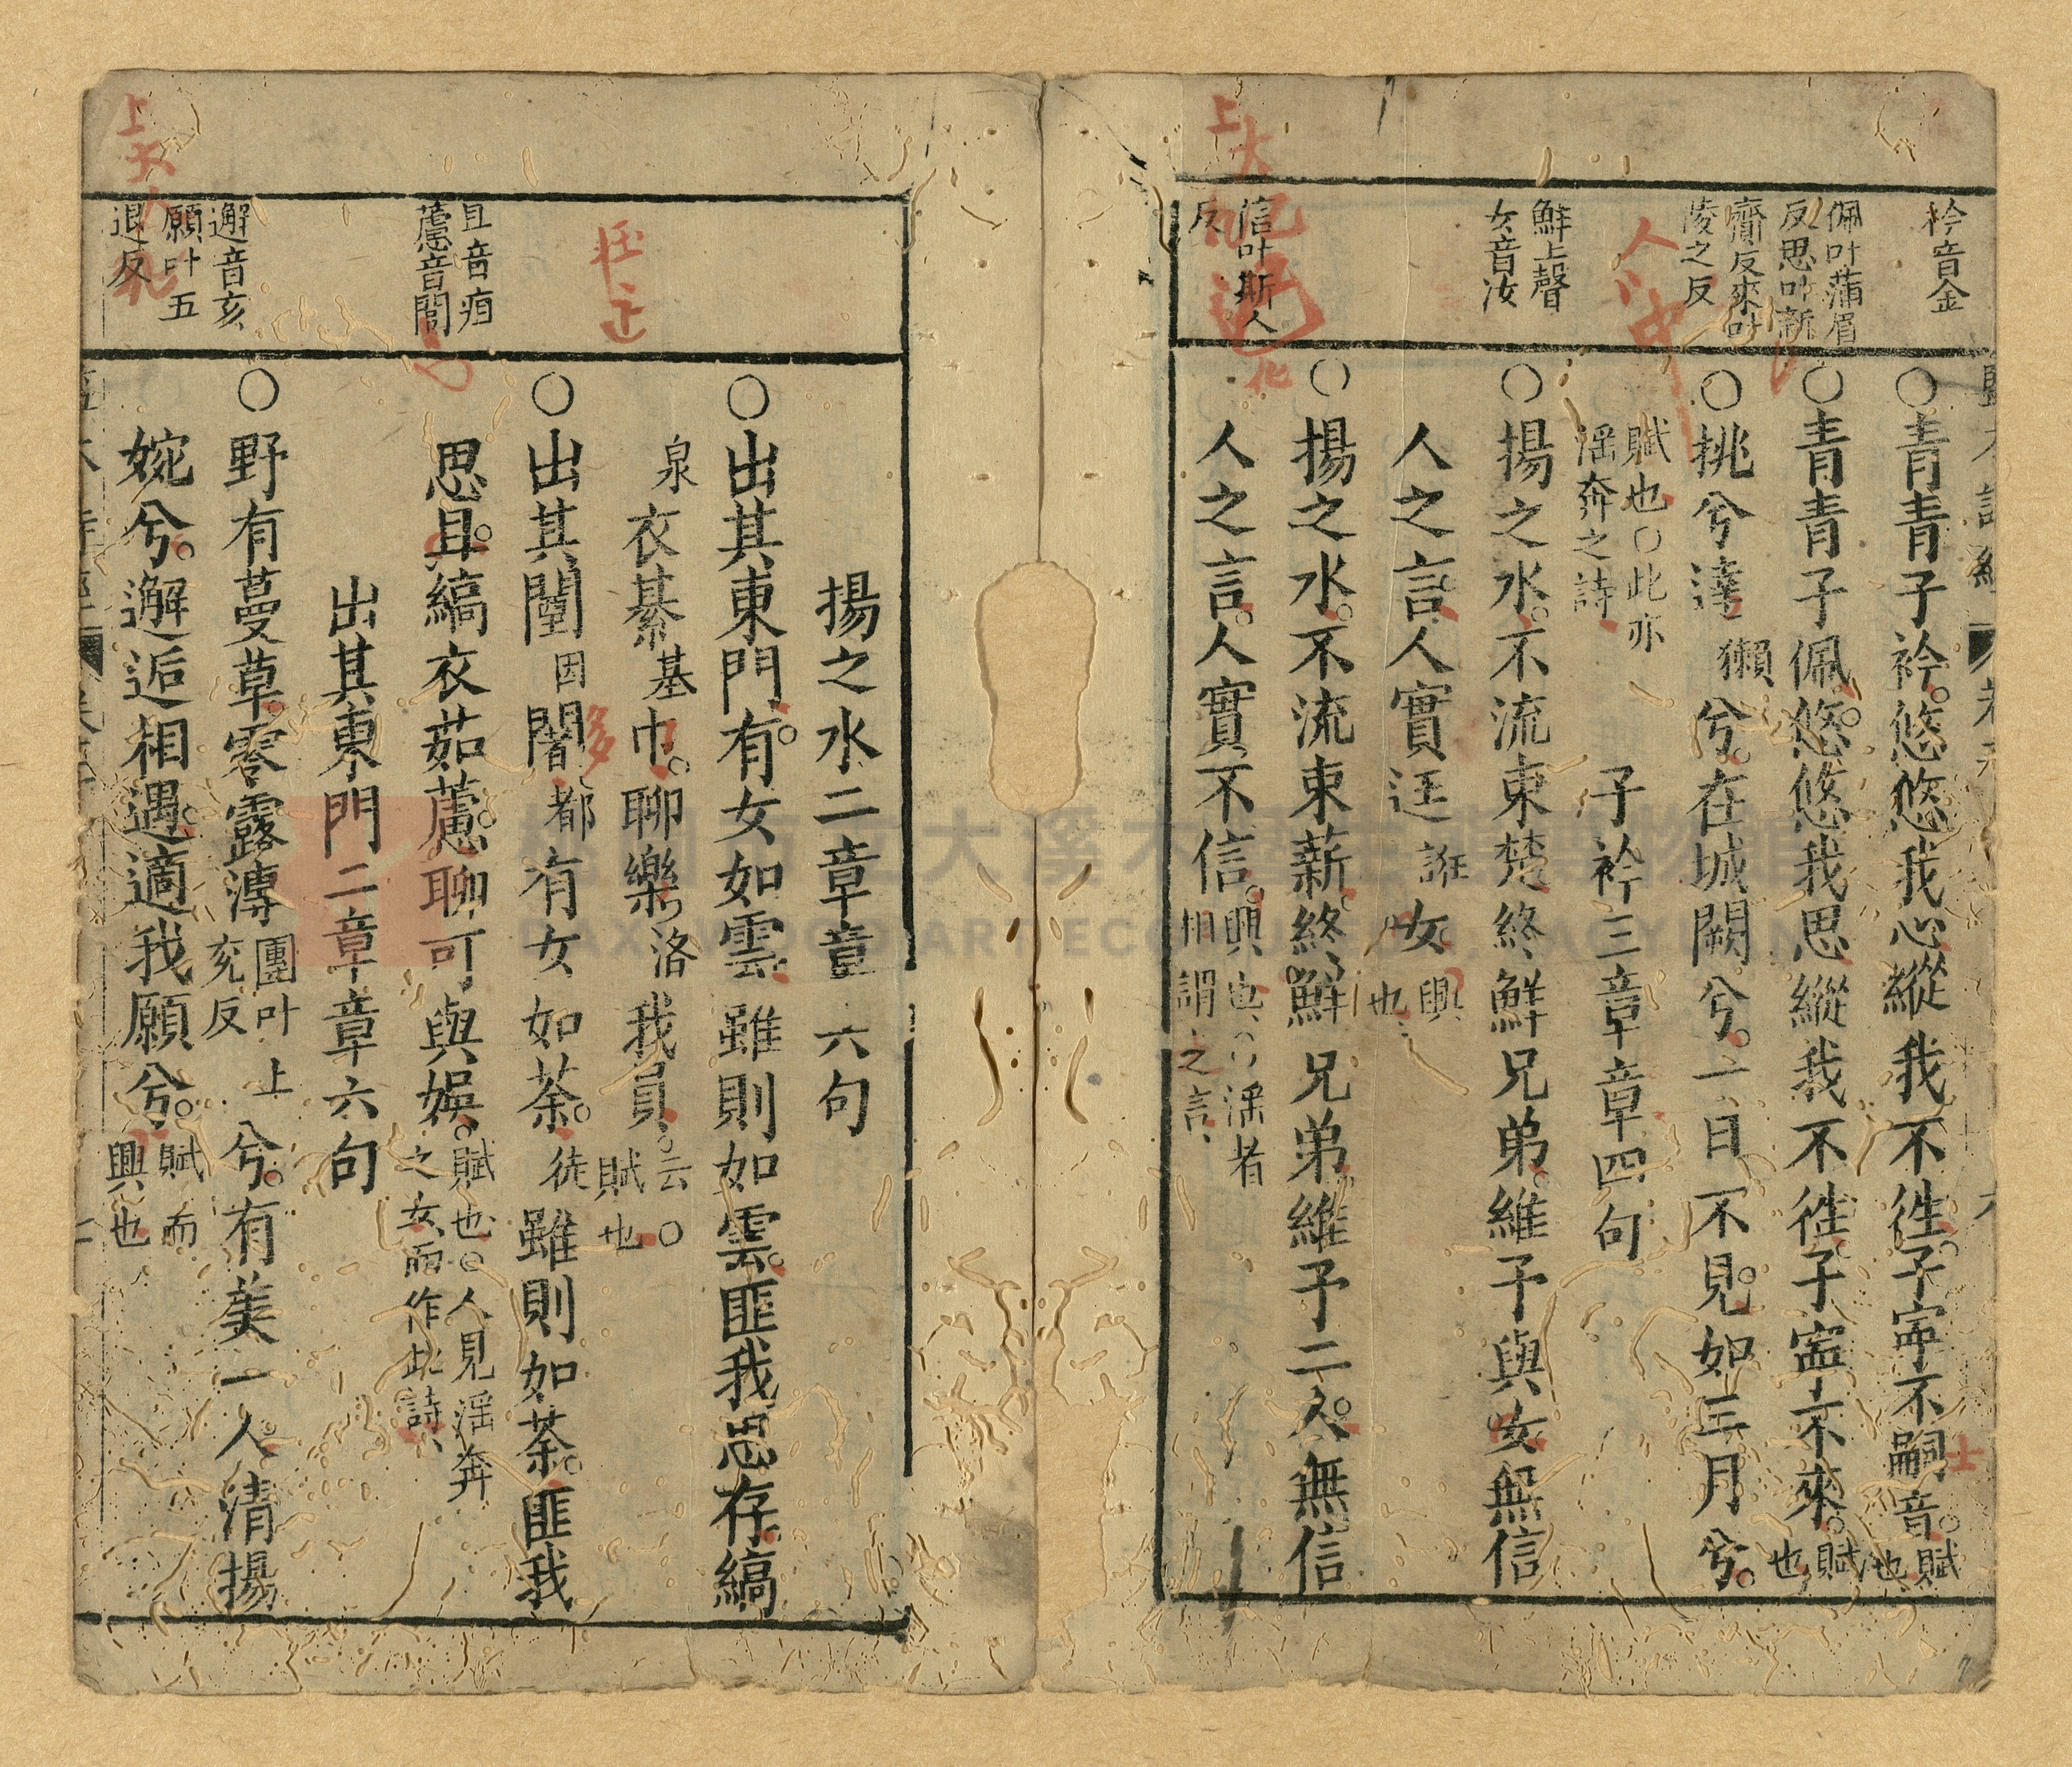 衿音金
佩叶蒲眉
反思叶新
齎反來叶
陵之反
鮮上聲
女音汝
信叶斯人
反
○青青子衿。悠悠我心。縱我不徃。子寕不嗣音。賦也
○青青子佩。悠悠我思。縱我不徃。子寧不來。賦也
○挑兮達獺兮。在城闕兮。一日不見。如三月兮。
賦也○此亦
淫奔之詩
子衿三章章四句
○揚之水。不流東楚。終鮮兄弟。維予與女。無信
人之言。人實迋誑女興也
○揚之水。不流東薪。終鮮兄弟。維予二人。無信
人之言。人實不信。興也○淫者相謂之言
揚之水二章章六句
○出其東門。有女如雲。雖則如雲。匪我思存。縞
泉衣綦基巾。聊樂洛我員。云○賦也
○出其闉因闍都有女如荼。徒雖則如荼。匪我
思且。縞衣茹藘。聊可與娛。賦也○人見淫奔之女而作此詩
出其東門二章章六句
○野有蔓草。零露漙團叶上兗反兮。有美一人。清揚
婉兮。邂逅相遇。適我願兮。賦而興也
且音疽
藘音閭
邂音亥
願叶五
退反